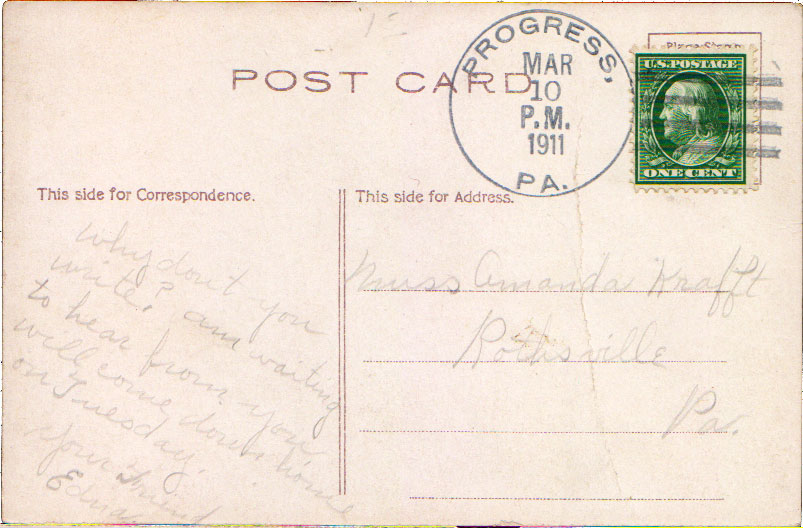 POST CARD
PROGRESS,
MAR
10
P.M.
1911
PA.
Place Stamp
U.S. POSTAGE
ONE CENT
This side for Correspondence.
This side for Address.
Why don't you
write? am waiting
to hear from you
will come down home
on Tuesday.
Your Friend
Edna.
Miss Amanda Krafft
Rothsville
Pa.